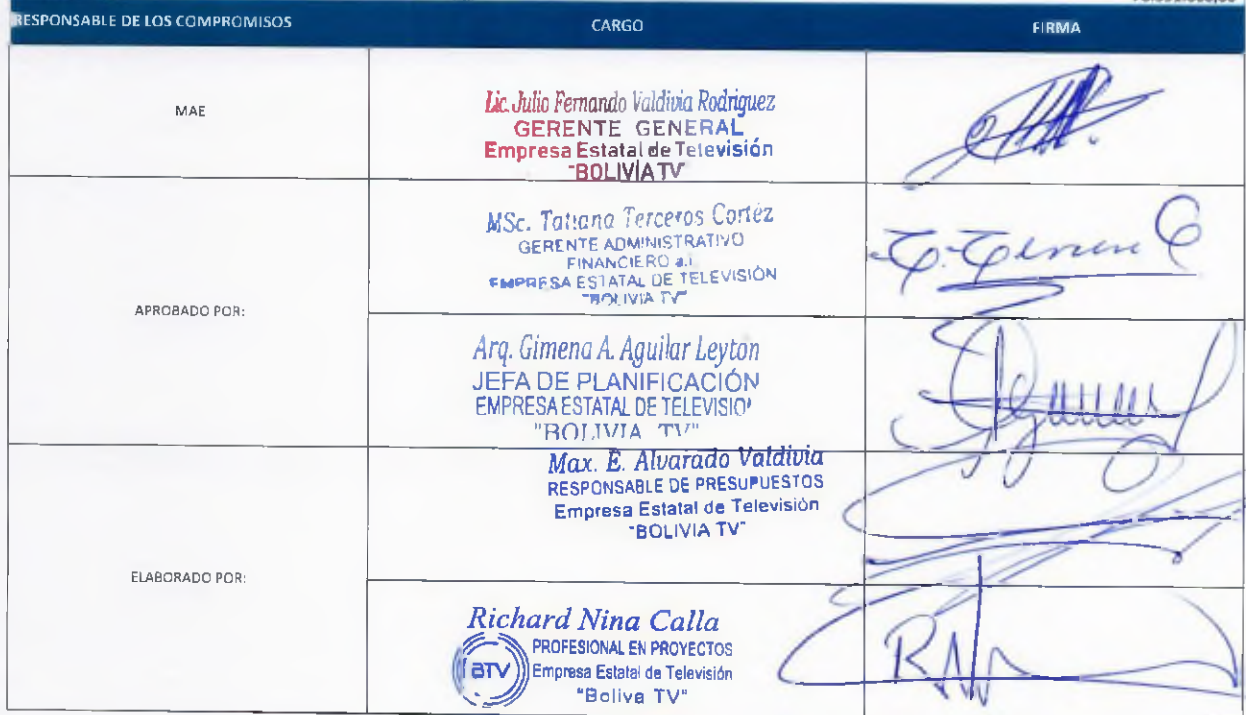 RESPONSABLE DE LOS COMPROMISOS CARGO FIRMA
MAE
Lic. Julio Fernando Valdivia Rodriguez
GERENTE GENERAL
Empresa Estatal de Televisión
"BOLIVIA TV"
APROBADO POR:
MSc. Tatiana Terceros Cortéz
GERENTE ADMINISTRATIVO
FINANCIERO a.i.
EMPRESA ESTATAL DE TELEVISIÓN
"BOLIVIA TV"
Arq. Gimena A. Aguilar Leyton
JEFA DE PLANIFICACIÓN
EMPRESA ESTATAL DE TELEVISIO
"BOLIVIA TV"
ELABORADO POR:
Max. E. Alvarado Valdivia
RESPONSABLE DE PRESUPUESTOS
Empresa Estatal de Televisión
"BOLIVIA TV"
Richard Nina Calla
PROFESIONAL EN PROYECTOS
BTV Empresa Estatal de Televisión
"Boliva TV"